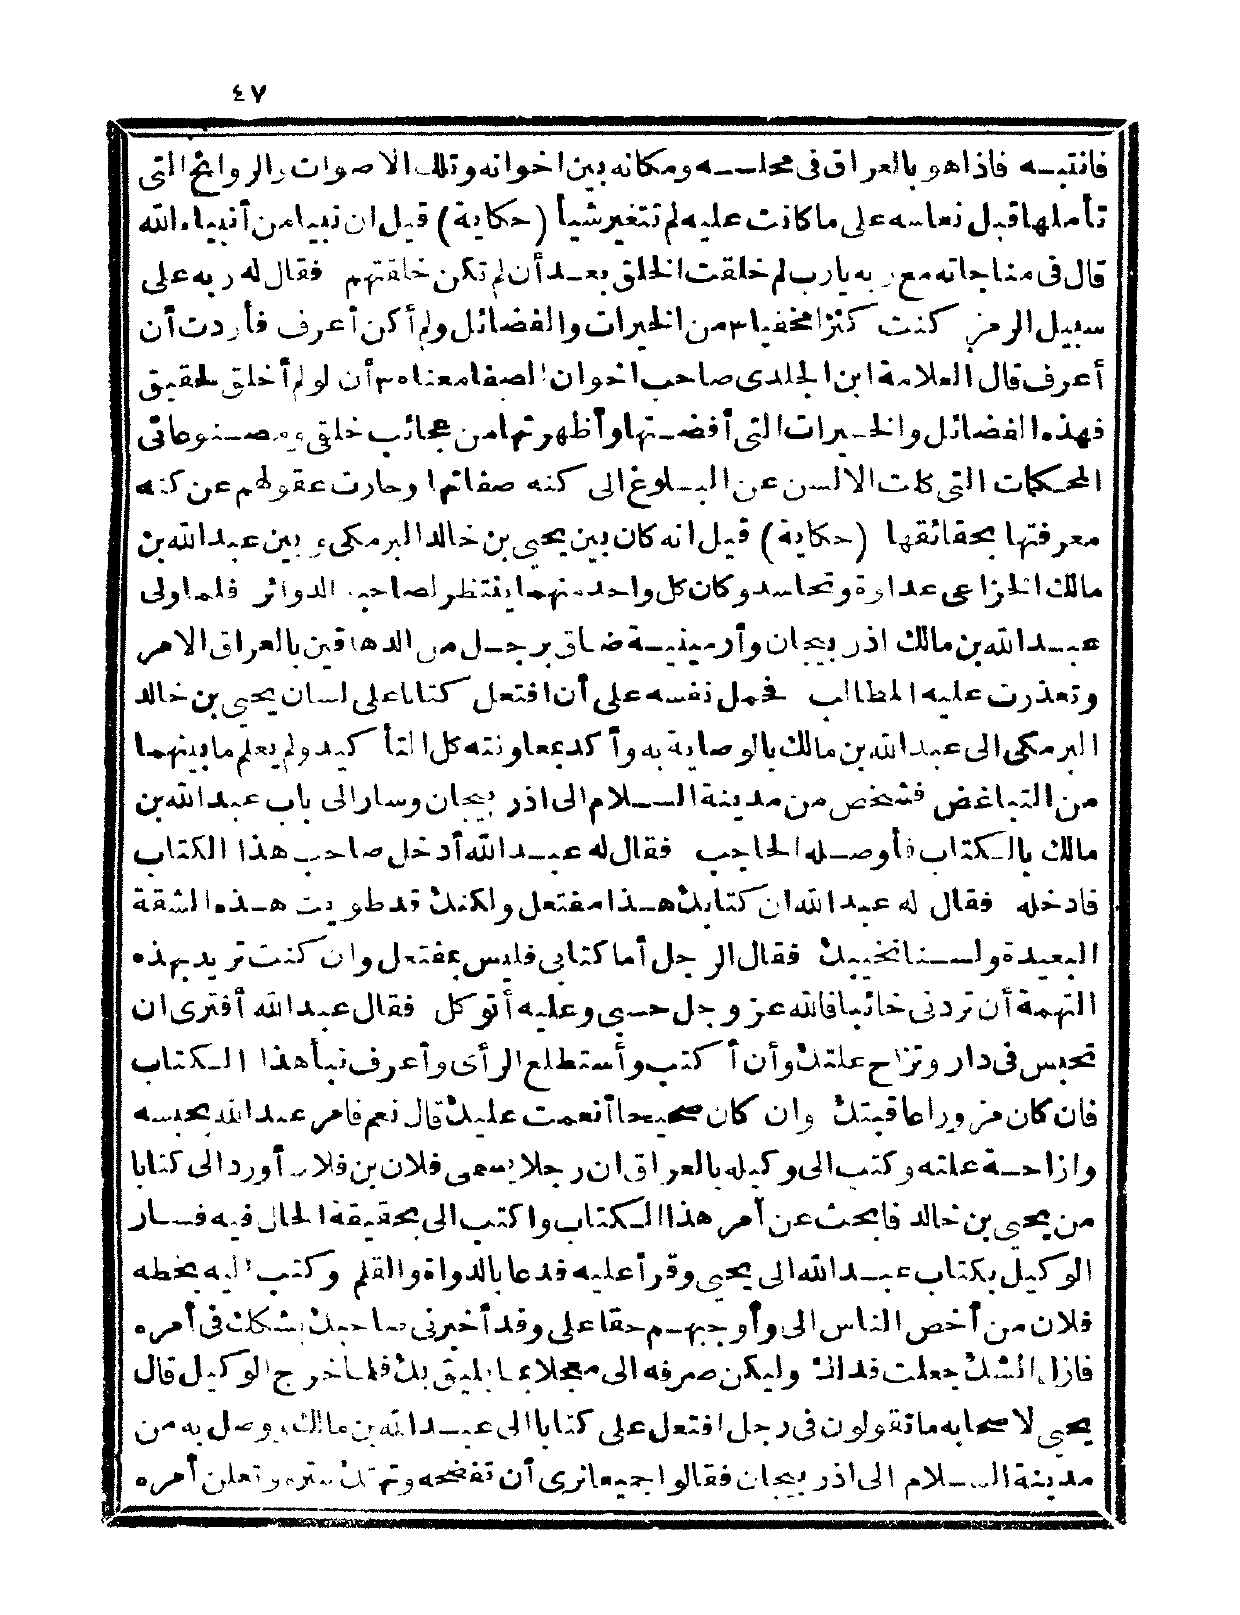 ٤٧
فانتبه فاذا هو بالعراق فى مجلسه ومكانه بين اخوانه وتلك الاصوات والروائح التى
تأملها قبل نعاسه على ما كانت عليه لم تتغير شيأ (حكاية) قيل ان نبيا من أنبياء الله
قال فى مناجاته مع ربه يارب لم خلقت الخلق بعد أن لم تكن خلقتهم فقال له ربه على
سبيل الرمز كنت كنزا مخفيا ٣ من الخيرات والفضائل ولم أكن أعرف فأردت أن
أعرف قال العلامة ابن الجلدى صاحب اخوان الصفا معناه ٣ أن لو لم أخلق لخفيق
فهذه الفضائل والخيرات التى أفضتها وأظهرتها من عجائب خلقى ومصنوعاتى
المحكمات التى كلت الالسن عن البلوغ الى كنه صفاتها وحارت عقولهم عن كنه
معرفتها بحقائقها (حكاية) قيل انه كان بين يحيى بن خالد البرمكى وبين عبد الله بن
مالك الخزاعى عداوة وتحاسد وكان كل واحد منهما ينتظر لصاحبه الدوائر فلما ولى
عبد الله بن مالك اذربيجان وأرمينية ضاق برجل من الدهاقين بالعراق الامر
وتعذرت عليه المطالب فحمل نفسه على أن افتعل كتابا على لسان يحيى بن خالد
البرمكى الى عبد الله بن مالك بالوصاية به وأكد بمعاونته كل التأكيد ولم يعلم ما بينهما
من التباغض فشخص من مدينة السلام الى اذربيجان وسار الى باب عبد الله بن
مالك بالكتاب فأوصله الحاجب فقال له عبد الله أدخل صاحب هذا الكتاب
فادخله فقال له عبد الله ان كتابك هذا مفتعل ولكنك قد طويت هذه الشقة
البعيدة ولسنا نخيبك فقال الرجل أما كتابى فليس بمفتعل وان كنت تريد بهذه
التهمة أن تردنى خائبا فالله عز وجل حسبى وعليه أتوكل فقال عبد الله أفترى ان
تحبس فى دار وتزاح علتك وأن أكتب وأستطلع الرأى وأعرف نبأ هذا الكتاب
فان كان مزورا عاقبتك وان كان صحيحا أنعمت عليك قال نعم فامر عبد الله بحبسه
وازاحة علته وكتب الى وكيله بالعراق ان رجلا يسمى فلان بن فلان أورد الى كتابا
من يحيى بن خالد فابحث عن أمر هذا الكتاب واكتب الى بحقيقة الحال فيه فسار
الوكيل بكتاب عبد الله الى يحيى وقرأ عليه فدعا بالدواة والقلم وكتب اليه بخطه
فلان من أخص الناس الى وأوجبهم حقا على وقد أخبرنى صاحبك بشكك فى أمره
فازل الشك جعلت فداك وليكن صرفه الى معجلا بما يليق بك فلما خرج الوكيل قال
يحيى لاصحابه ما تقولون فى رجل افتعل على كتابا الى عبد الله بن مالك ووصل به من
مدينة السلام الى اذربيجان فقالوا جميعا نرى أن تفضحه وتهتك ستره وتعلن أمره